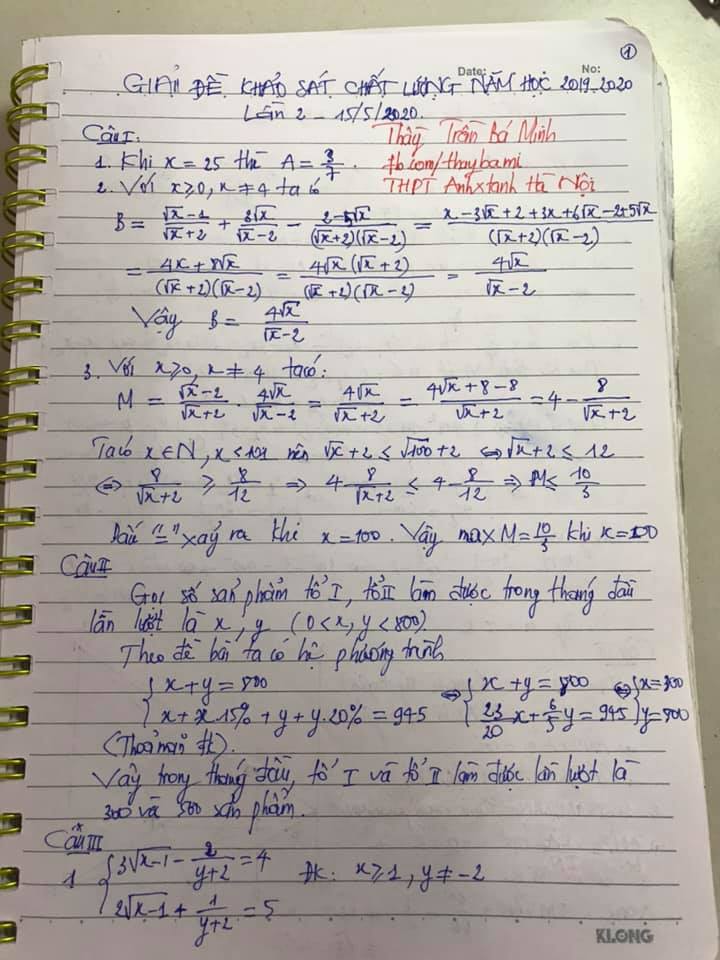 ①
Date: No:
GIẢI ĐỀ KHẢO SÁT CHẤT LƯỢNG NĂM HỌC 2019-2020
Lần 2 - 15/5/2020.
Câu I: Thầy Trần Bá Minh
1. Khi x = 25 thì A = 3/7. fb.com/thaybami
2. Với x ≥ 0, x ≠ 4 ta có THPT Anhxtanh Hà Nội
B = (√x - 1)/(√x + 2) + 3√x/(√x - 2) - (2 - 5√x)/((√x + 2)(√x - 2)) = (x - 3√x + 2 + 3x + 6√x - 2 + 5√x)/((√x + 2)(√x - 2))
= (4x + 8√x)/((√x + 2)(√x - 2)) = 4√x(√x + 2)/((√x + 2)(√x - 2)) = 4√x/(√x - 2)
Vậy B = 4√x/(√x - 2)
3. Với x ≥ 0, x ≠ 4 ta có:
M = (√x - 2)/(√x + 2) . 4√x/(√x - 2) = 4√x/(√x + 2) = (4√x + 8 - 8)/(√x + 2) = 4 - 8/(√x + 2)
Ta có x ∈ N, x < 101 nên √x + 2 ≤ √100 + 2 ⇔ √x + 2 ≤ 12
⇔ 8/(√x + 2) ≥ 8/12 ⇒ 4 - 8/(√x + 2) ≤ 4 - 8/12 ⇒ M ≤ 10/3
Dấu "=" xảy ra khi x = 100. Vậy max M = 10/3 khi x = 100
Câu II
Gọi số sản phẩm tổ I, tổ II làm được trong tháng đầu
lần lượt là x, y (0 < x, y < 800)
Theo đề bài ta có hệ phương trình
{ x + y = 800 ⇔ { x + y = 800 ⇔ { x = 300
{ x + x.15% + y + y.20% = 945 { 23/20 x + 6/5 y = 945 { y = 500
(Thoả mãn đk).
Vậy trong tháng đầu, tổ I và tổ II làm được lần lượt là
300 và 500 sản phẩm.
Câu III
1 { 3√(x-1) - 2/(y+2) = 4 ĐK: x ≥ 1, y ≠ -2
{ 2√(x-1) + 1/(y+2) = 5
KLONG